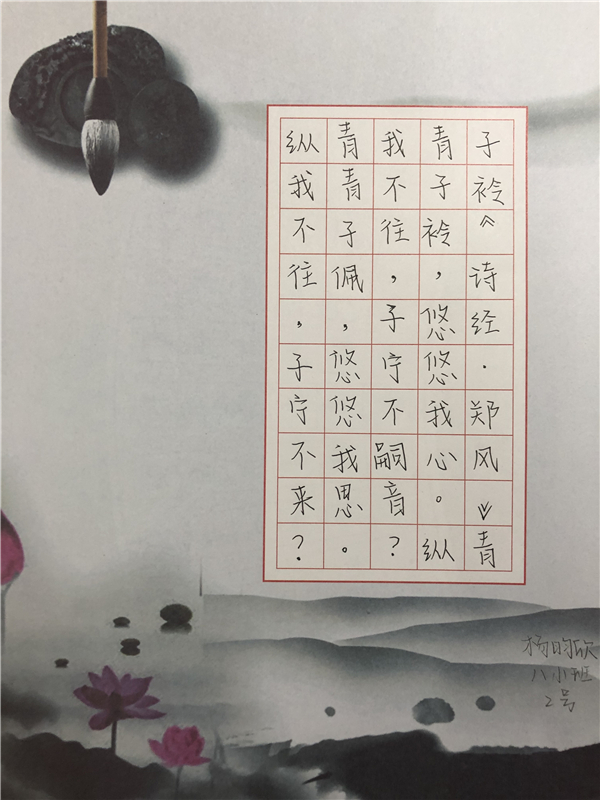 子衿《诗经·郑风》青
青子衿，悠悠我心。纵
我不往，子宁不嗣音？
青青子佩，悠悠我思。
纵我不往，子宁不来？
杨昀欣
八小班
2号